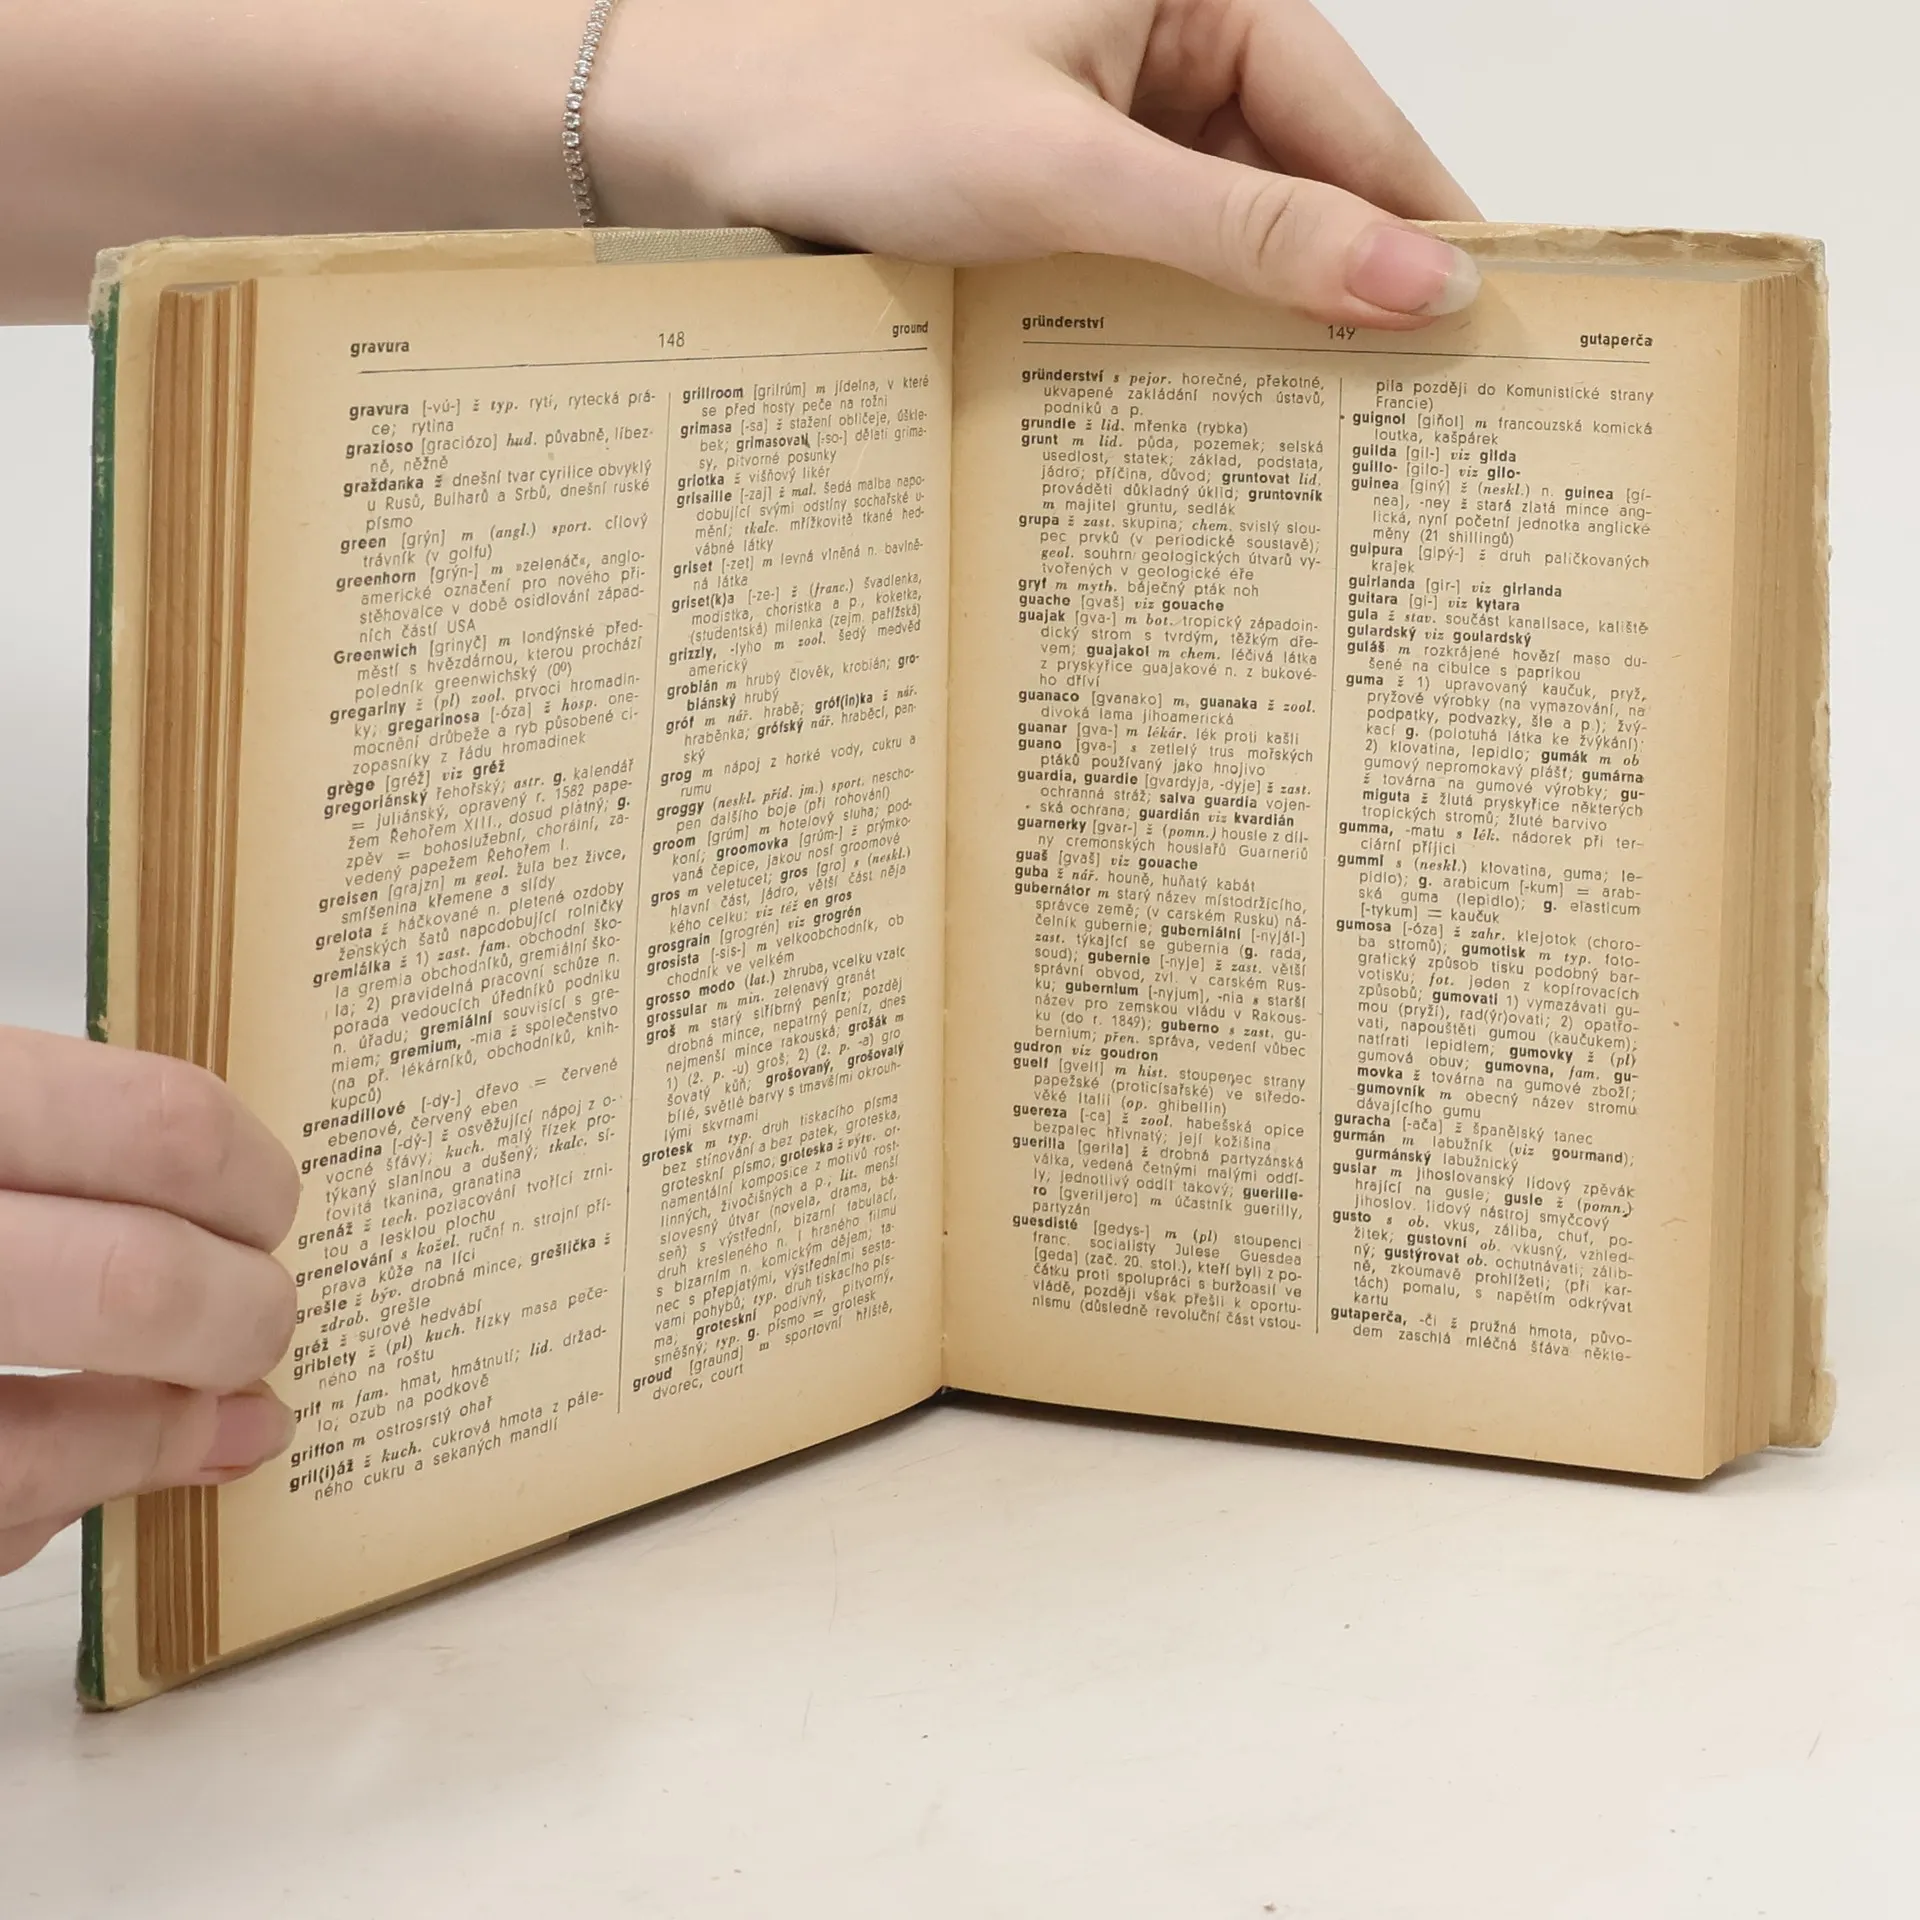 gravura 148 ground
gravura [-vú-] ž typ. rytí, rytecká prá-
ce; rytina
grazioso [graciózo] hud. půvabně, líbez-
ně, něžně
graždanka ž dnešní tvar cyrilice obvyklý
u Rusů, Bulharů a Srbů, dnešní ruské
písmo
green [grýn] m (angl.) sport. cílový
trávník (v golfu)
greenhorn [grýn-] m »zelenáč«, anglo-
americké označení pro nového při-
stěhovalce v době osidlování západ-
ních částí USA
Greenwich [grinyč] m londýnské před-
městí s hvězdárnou, kterou prochází
poledník greenwichský (0⁰)
gregariny ž (pl) zool. prvoci hromadin-
ky; gregarinosa [-óza] ž hosp. one-
mocnění drůbeže a ryb působené ci-
zopasníky z řádu hromadinek
grège [gréž] viz gréž
gregoriánský řehořský; astr. g. kalendář
= juliánský, opravený r. 1582 pape-
žem Řehořem XIII., dosud platný; g.
zpěv = bohoslužební, chorální, za-
vedený papežem Řehořem I.
greisen [grajzn] m geol. žula bez živce,
smíšenina křemene a slídy
grelota ž háčkované n. pletené ozdoby
ženských šatů napodobující rolničky
gremiálka ž 1) zast. fam. obchodní ško-
la gremia obchodníků, gremiální ško-
la; 2) pravidelná pracovní schůze n.
porada vedoucích úředníků podniku
n. úřadu; gremiální souvisící s gre-
miem; gremium, -mia ž společenstvo
(na př. lékárníků, obchodníků, knih-
kupců)
grenadillové [-dy-] dřevo = červené
ebenové, červený eben
grenadina [-dý-] ž osvěžující nápoj z o-
vocné šťávy; kuch. malý řízek pro-
týkaný slaninou a dušený; tkalc. sí-
ťovitá tkanina, granatina
grenáž ž tech. poziacování tvořící zrni-
tou a lesklou plochu
grenelování s kožel. ruční n. strojní pří-
prava kůže na líci
grešle ž býv. drobná mince, grešlička ž
zdrob. grešle
gréž ž surové hedvábí
griblety ž (pl) kuch. řízky masa peče-
ného na roštu
grif m fam. hmat, hmátnutí; lid. držad-
lo; ozub na podkově
griffon m ostrosrstý ohař
gril(i)áž ž kuch. cukrová hmota z pále-
ného cukru a sekaných mandlí
grillroom [grilrúm] m jídelna, v které
se před hosty peče na rožni
grimasa [-sa] ž stažení obličeje, úškle-
bek; grimasovati [-so-] dělati grima-
sy, pitvorné posunky
griotka ž višňový likér
grisaille [-zaj] ž mal. šedá malba napo-
dobující svými odstíny sochařské u-
mění; tkalc. mřížkovitě tkané hed-
vábné látky
griset [-zet] m levná vlněná n. bavlně-
ná látka
griset(k)a [-ze-] ž (franc.) švadlenka,
modistka, choristka a p., koketka,
(studentská) milenka (zejm. pařížská)
grizzly, -lyho m zool. šedý medvěd
americký
grobián m hrubý člověk, krobián; gro-
biánský hrubý
gróf m nář. hrabě; gróf(in)ka ž nář.
hraběnka; grófský nář. hraběcí, pan-
ský
grog m nápoj z horké vody, cukru a
rumu
groggy (neskl. příd. jm.) sport. nescho-
pen dalšího boje (při rohování)
groom [grúm] m hotelový sluha; pod-
koní; groomovka [grúm-] ž prýmko-
vaná čepice, jakou nosí groomové
gros m veletucet; gros [gro] s (neskl.)
hlavní část, jádro, větší část něja
kého celku: viz též en gros
grosgrain [grogrén] viz grogrén
grosista [-sis-] m velkoobchodník, ob
chodník ve velkém
grosso modo (lat.) zhruba, vcelku vzato
grossular m min. zelenavý granát
groš m starý stříbrný peníz; později
drobná mince, nepatrný peníz, dnes
nejmenší mince rakouská; grošák m
1) (2. p. -u) groš; 2) (2. p. -a) gro
šovatý kůň; grošovaný, grošovatý
bílé, světlé barvy s tmavšími okrouh-
lými skvrnami
grotesk m typ. druh tiskacího písma
bez stínování a bez patek, groteska,
groteskní písmo; groteska ž výtv. or-
namentální komposice z motivů rost-
linných, živočišných a p.; lit. menší
slovesný útvar (novela, drama, bá-
seň) s výstřední, bizarní fabulací,
druh kresleného n. i hraného filmu
s bizarním n. komickým dějem; ta-
nec s přepjatými, výstředními sesta-
vami pohybů; typ. druh tiskacího pís-
ma; groteskní podivný, pitvorný,
směšný; typ. g. písmo = grotesk
groud [graund] m sportovní hřiště,
dvorec, court
gründerství 149 gutaperča
gründerství s pejor. horečné, překotné,
ukvapené zakládání nových ústavů,
podniků a p.
grundle ž lid. mřenka (rybka)
grunt m lid. půda, pozemek; selská
usedlost, statek; základ, podstata,
jádro; příčina, důvod; gruntovat lid.
prováděti důkladný úklid; gruntovník
m majitel gruntu, sedlák
grupa ž zast. skupina; chem. svislý slou-
pec prvků (v periodické soustavě);
geol. souhrn geologických útvarů vy-
tvořených v geologické éře
gryf m myth. báječný pták noh
guache [gvaš] viz gouache
guajak [gva-] m bot. tropický západoin-
dický strom s tvrdým, těžkým dře-
vem; guajakol m chem. léčivá látka
z pryskyřice guajakové n. z bukové-
ho dříví
guanaco [gvanako] m, guanaka ž zool.
divoká lama jihoamerická
guanar [gva-] m lékár. lék proti kašli
guano [gva-] s zetlelý trus mořských
ptáků používaný jako hnojivo
guardia, guardie [gvardyja, -dyje] ž zast.
ochranná stráž; salva guardia vojen-
ská ochrana; guardián viz kvardián
guarnerky [gvar-] ž (pomn.) housle z díl-
ny cremonských houslařů Guarneriů
guaš [gvaš] viz gouache
guba ž nář. houně, huňatý kabát
gubernátor m starý název místodržícího,
správce země; (v carském Rusku) ná-
čelník gubernie; guberniální [-nyjál-]
zast. týkající se gubernia (g. rada,
soud); gubernie [-nyje] ž zast. větší
správní obvod, zvl. v carském Rus-
ku; gubernium [-nyjum], -nia s starší
název pro zemskou vládu v Rakous-
ku (do r. 1849); guberno s zast. gu-
bernium; přen. správa, vedení vůbec
gudron viz goudron
guelf [gvelf] m hist. stoupenec strany
papežské (proticísařské) ve středo-
věké Italii (op. ghibellin)
guereza [-ca] ž zool. habešská opice
bezpalec hřivnatý; její kožišina
guerilla [gerila] ž drobná partyzánská
válka, vedená četnými malými oddí-
ly; jednotlivý oddíl takový; guerille-
ro [gveriljero] m účastník guerilly,
partyzán
guesdisté [gedys-] m (pl) stoupenci
franc. socialisty Julese Guesdea
[geda] (zač. 20. stol.), kteří byli z po-
čátku proti spolupráci s buržoasií ve
vládě, později však přešli k oportu-
nismu (důsledně revoluční část vstou-
pila později do Komunistické strany
Francie)
guignol [giňol] m francouzská komická
loutka, kašpárek
guilda [gil-] viz gilda
guillo- [gilo-] viz gilo-
guinea [giný] ž (neskl.) n. guinea [gí-
nea], -ney ž stará zlatá mince ang-
lická, nyní početní jednotka anglické
měny (21 shillingů)
guipura [gipý-] ž druh paličkovaných
krajek
guirlanda [gir-] viz girlanda
guitara [gi-] viz kytara
gula ž stav. součást kanalisace, kaliště
gulardský viz goulardský
guláš m rozkrájené hovězí maso du-
šené na cibulce s paprikou
guma ž 1) upravovaný kaučuk, pryž,
pryžové výrobky (na vymazování, na
podpatky, podvazky, šle a p.); žvý-
kací g. (polotuhá látka ke žvýkání);
2) klovatina, lepidlo; gumák m ob
gumový nepromokavý plášť; gumárna
ž továrna na gumové výrobky; gu-
miguta ž žlutá pryskyřice některých
tropických stromů; žluté barvivo
gumma, -matu s lék. nádorek při ter-
ciární příjici
gummi s (neskl.) klovatina, guma; le-
pidlo); g. arabicum [-kum] = arab-
ská guma (lepidlo); g. elasticum
[-tykum] = kaučuk
gumosa [-óza] ž zahr. klejotok (choro-
ba stromů); gumotisk m typ. foto-
grafický způsob tisku podobný bar-
votisku; fot. jeden z kopírovacích
způsobů; gumovati 1) vymazávati gu-
mou (pryží), rad(ýr)ovati; 2) opatřo-
vati, napouštěti gumou (kaučukem);
natírati lepidlem; gumovky ž (pl)
gumová obuv; gumovna, fam. gu-
movka ž továrna na gumové zboží;
gumovník m obecný název stromu
dávajícího gumu
guracha [-ača] ž španělský tanec
gurmán m labužník (viz gourmand);
gurmánský labužnický
guslar m jihoslovanský lidový zpěvák
hrající na gusle; gusle ž (pomn.)
jihoslov. lidový nástroj smyčcový
gusto s ob. vkus, záliba, chuť, po-
žitek; gustovní ob. vkusný, vzhled-
ný; gustýrovat ob. ochutnávati; zálib-
ně, zkoumavě prohlížeti; (při kar-
tách) pomalu, s napětím odkrývat
kartu
gutaperča, -či ž pružná hmota, půvo-
dem zaschlá mléčná šťáva někte-